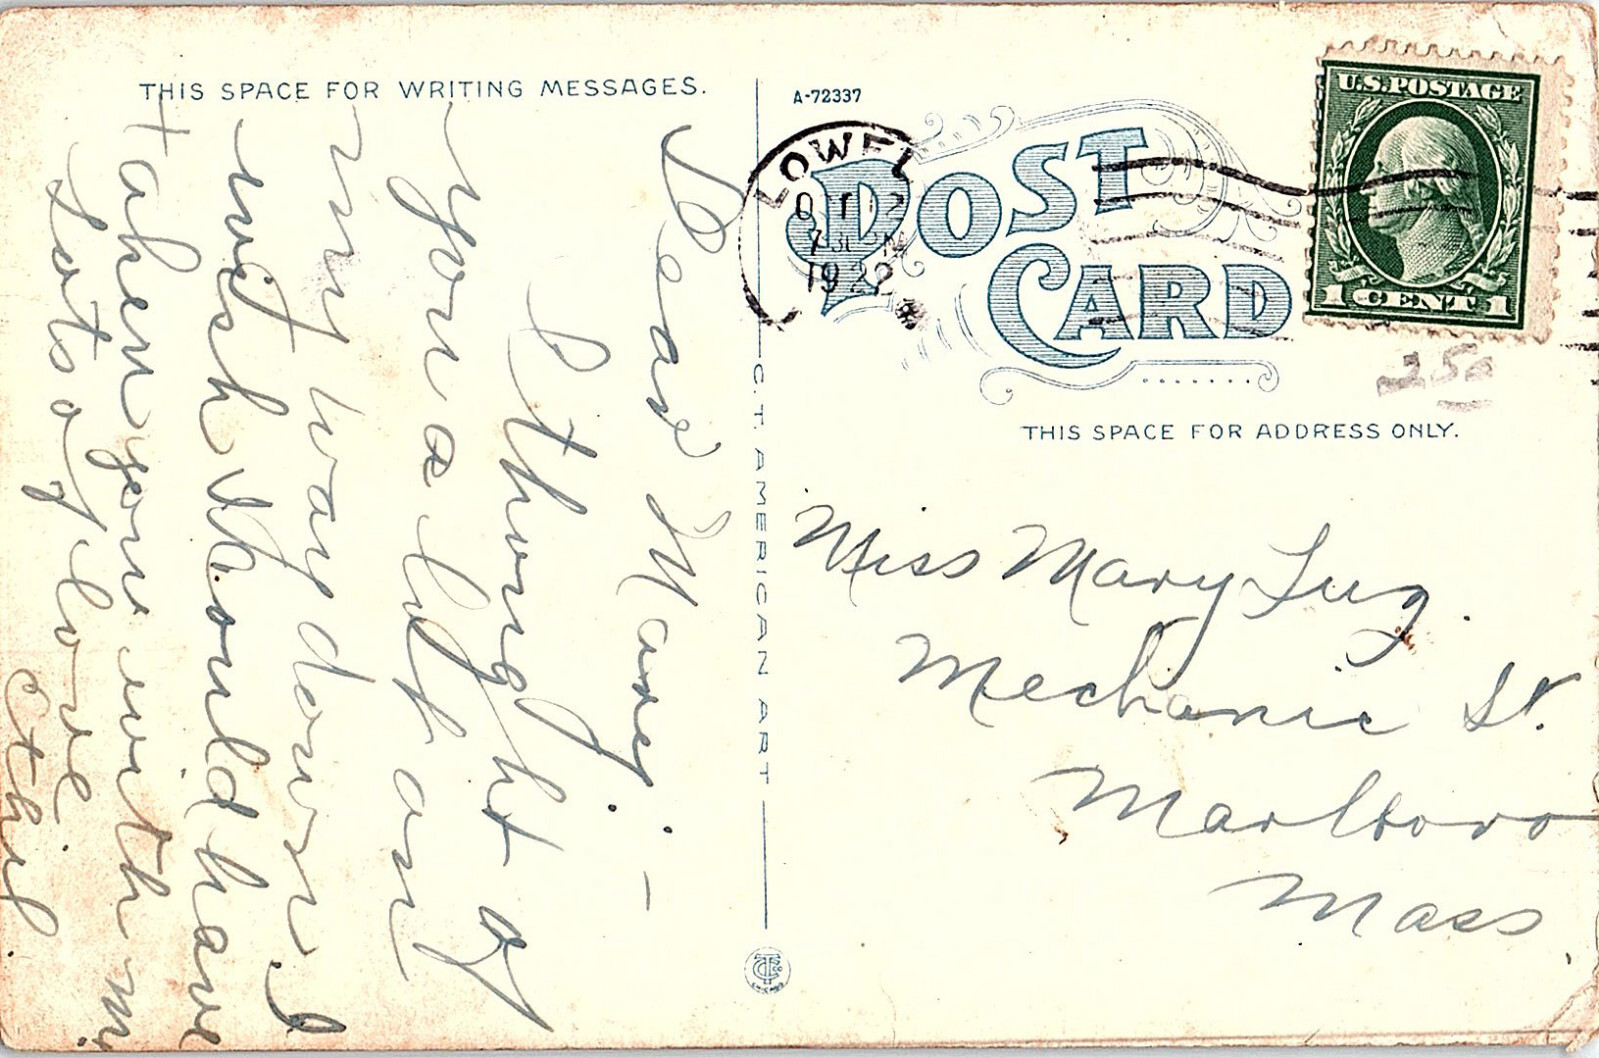 THIS SPACE FOR WRITING MESSAGES.
Dear Mary: -
I thought of
you a lot on
my way down I
wish I could have
taken you with me
Lots of love
Ethil.
A-72337
POST
CARD
LOWELL
OCT 12
7 30 PM
1922
U.S. POSTAGE
1 CENT 1
25¢
C.T. AMERICAN ART
THIS SPACE FOR ADDRESS ONLY.
Miss Mary Lug.
Mechanic St.
Marlboro
Mass